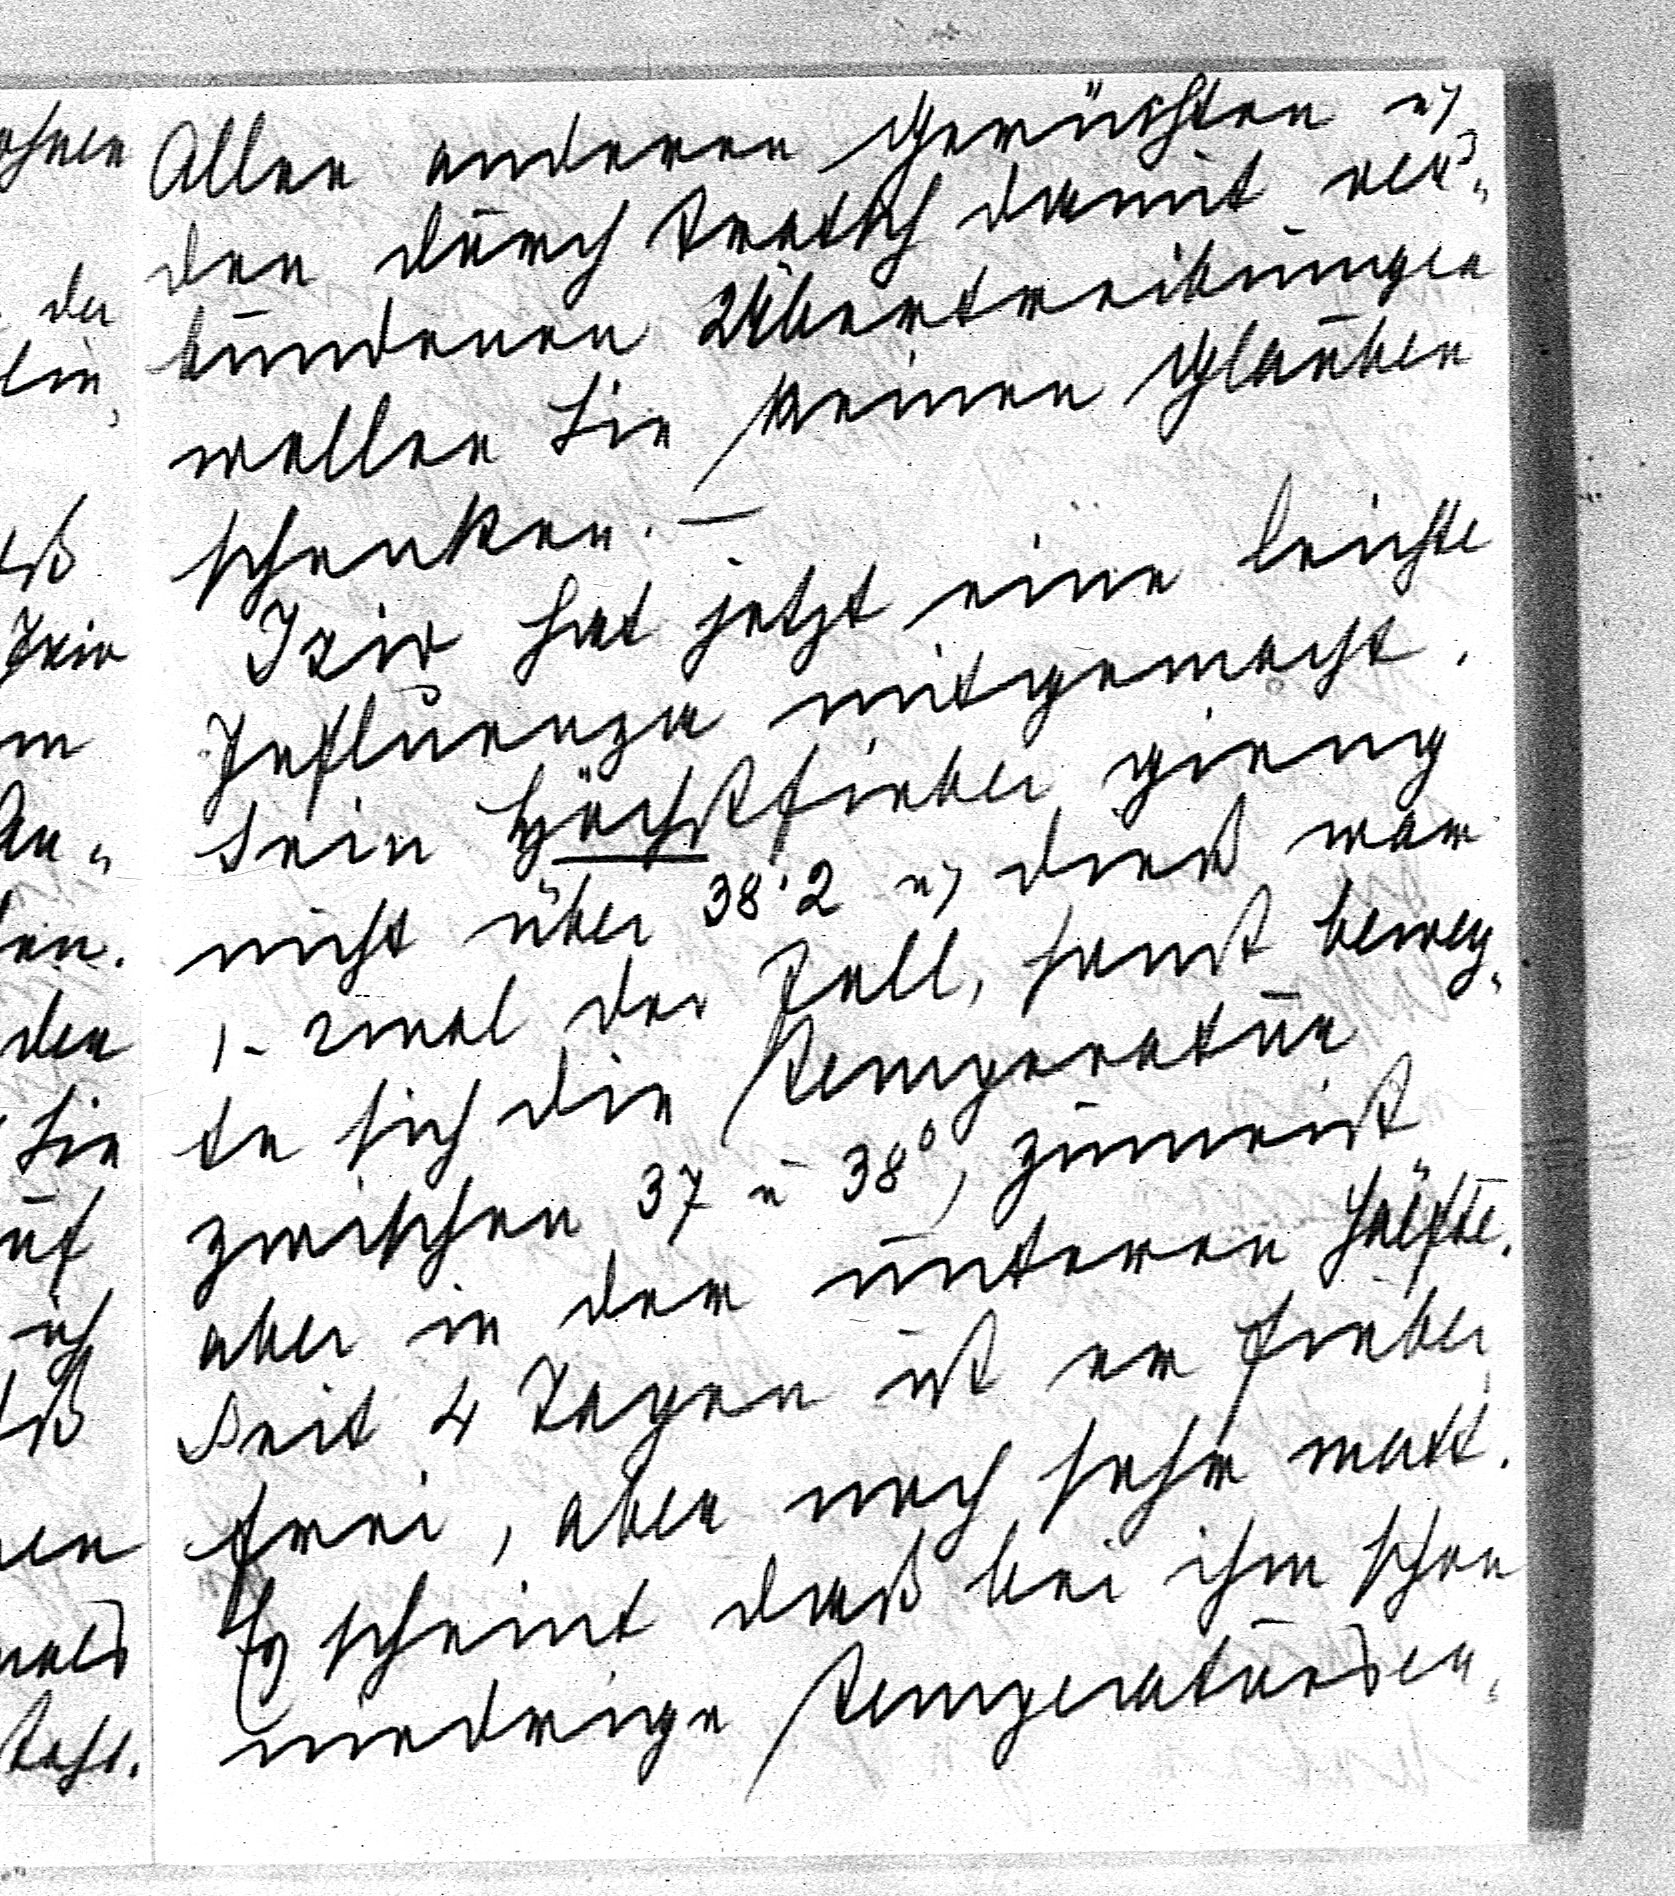 Allen anderen Gerüchten u
den durch Tratsch damit ver„
bundenen Übertreibungen
wollen Sie keinen Glauben
schenken. —
Izio hat jetzt eine leichte
Influenza mitgemacht.
Sein Höchstfieber gieng
nicht über 38·2 u dies war
1-2mal der Fall, sonst beweg„
te sich die Temperatur
zwischen 37 u 38°, zumeist
aber in der unteren Hälfte.
Seit 4 Tagen ist er fieber
frei, aber noch sehr matt.
Es scheint daß bei ihm schon
niedrige Temperaturen